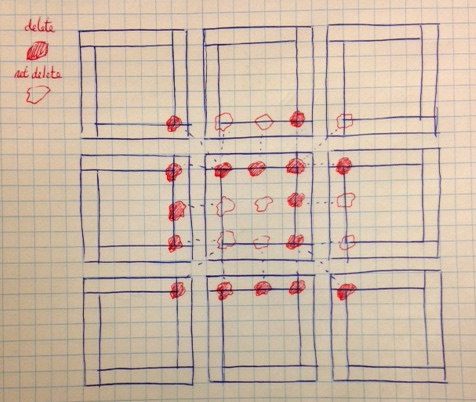 delete
not delete